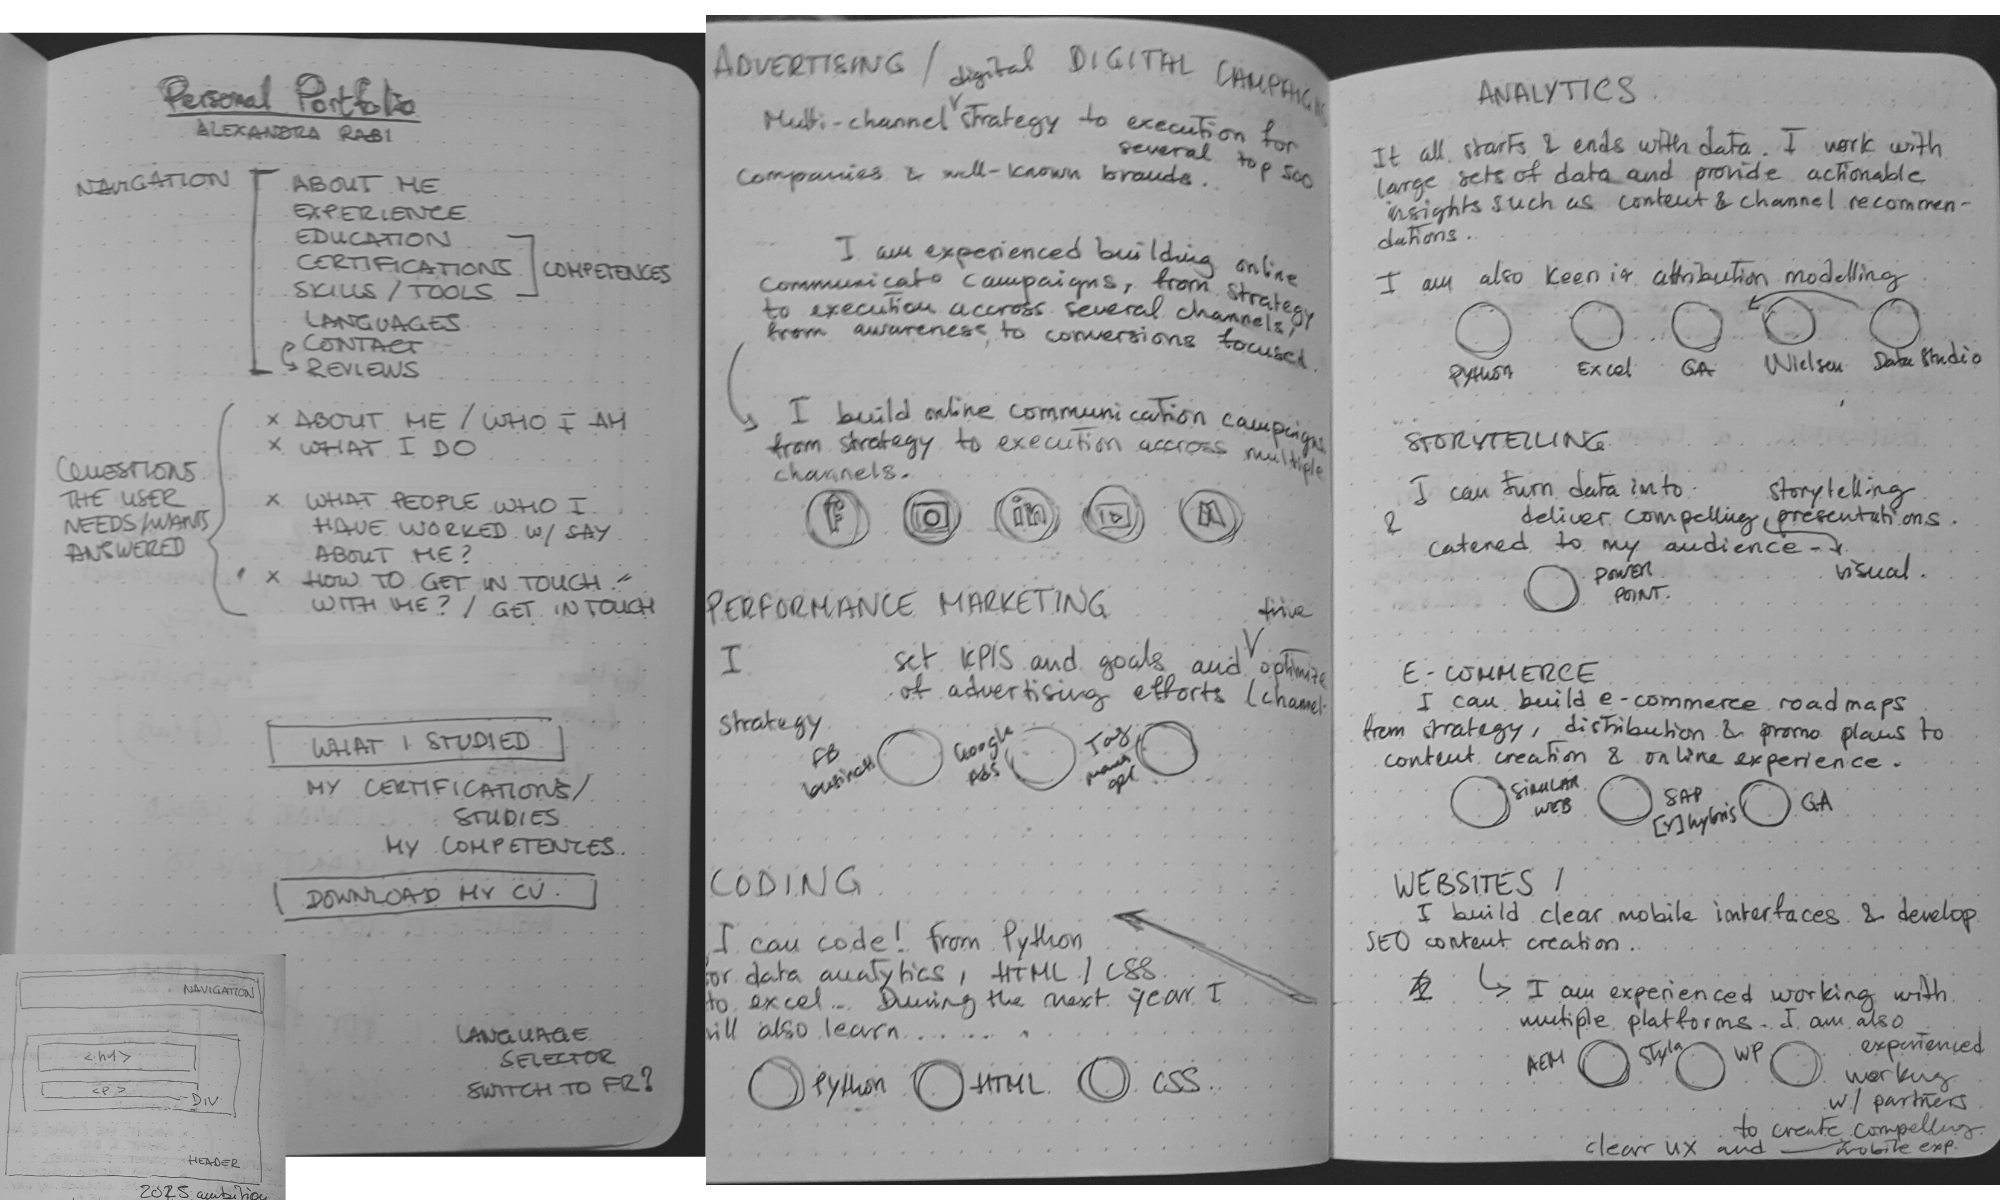 Personal Portfolio
ALEXANDRA RABI
NAVIGATION
ABOUT ME
EXPERIENCE
EDUCATION
CERTIFICATIONS
SKILLS / TOOLS
COMPETENCES
LANGUAGES
CONTACT
REVIEWS
QUESTIONS
THE USER
NEEDS/WANTS
ANSWERED
x ABOUT ME / WHO I AM
x WHAT I DO
x WHAT PEOPLE WHO I
HAVE WORKED W/ SAY
ABOUT ME?
x HOW TO GET IN TOUCH
WITH ME? / GET IN TOUCH
WHAT I STUDIED
MY CERTIFICATIONS/
STUDIES
MY COMPETENCES.
DOWNLOAD MY CV.
LANGUAGE
SELECTOR
SWITCH TO FR?
NAVIGATION
<h1>
<p>
DIV
HEADER
2025 ambition
ADVERTISING / digital DIGITAL CAMPAIGNS
Multi-channel strategy to execution for
several top 500
companies & well-known brands.
I am experienced building online
communicato campaigns, from strategy
to execution accross several channels,
from awareness, to conversions focused.
I build online communication campaigns
from strategy to execution accross multiple
channels.
f in
PERFORMANCE MARKETING
drive
I set KPIS and goals and optimize
of advertising efforts (channel
strategy
FB
business
Google
ADS
Tag
CODING
I can code! from Python
for data analytics, HTML / CSS
to excel... During the next year I
will also learn..........
Python HTML CSS..
ANALYTICS
It all starts & ends with data. I work with
large sets of data and provide actionable
insights such as content & channel recommen-
dations.
I am also keen in attribution modelling
Python Excel GA Nielsen Data Studio
STORYTELLING
I can turn data into storytelling
& deliver compelling presentations.
catered to my audience -
visual.
POWER
POINT.
E-COMMERCE
I can build e-commerce roadmaps
from strategy, distribution & promo plans to
content creation & online experience.
SIMILAR
WEB
SAP
[Y] hybris
GA
WEBSITES /
I build clear mobile interfaces & develop
SEO content creation.
I am experienced working with
multiple platforms. I am also
experienced
working
w/ partners
to create compelling
clear UX and mobile exp.
AEM Styla WP